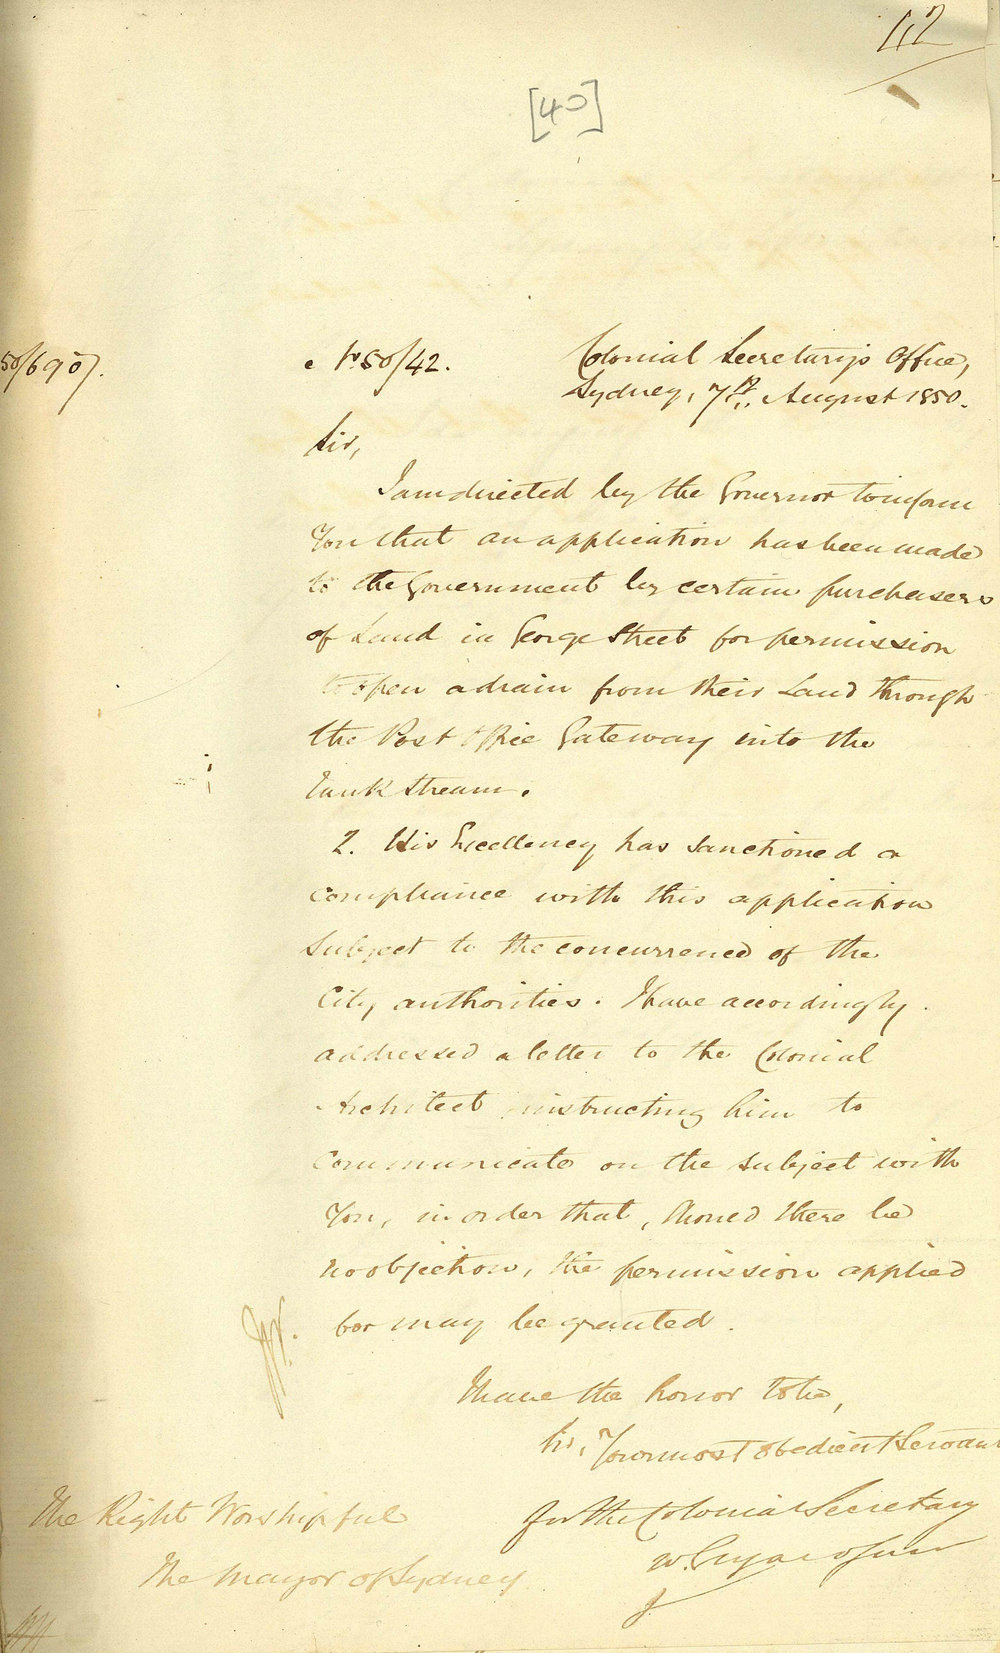 112
[40]
50/6907.
No 50/42.
Colonial Secretary's Office,
Sydney, 7th. August 1850.
Sir,
I am directed by the Governor to inform
You that an application has been made
to the Government by certain purchasers
of Land in George Street for permission
to open a drain from their Land through
the Post Office Gateway into the
Tank Stream.
2. His Excellency has sanctioned a
compliance with this application
subject to the concurrence of the
City authorities. I have accordingly
addressed a letter to the Colonial
Architect instructing him to
communicate on the subject with
You, in order that, should there be
no objection, the permission applied
for may be granted.
I have the honor to be,
Sir, Your most obedient Servant
For the Colonial Secretary
W.
The Right Worshipful
The Mayor of Sydney